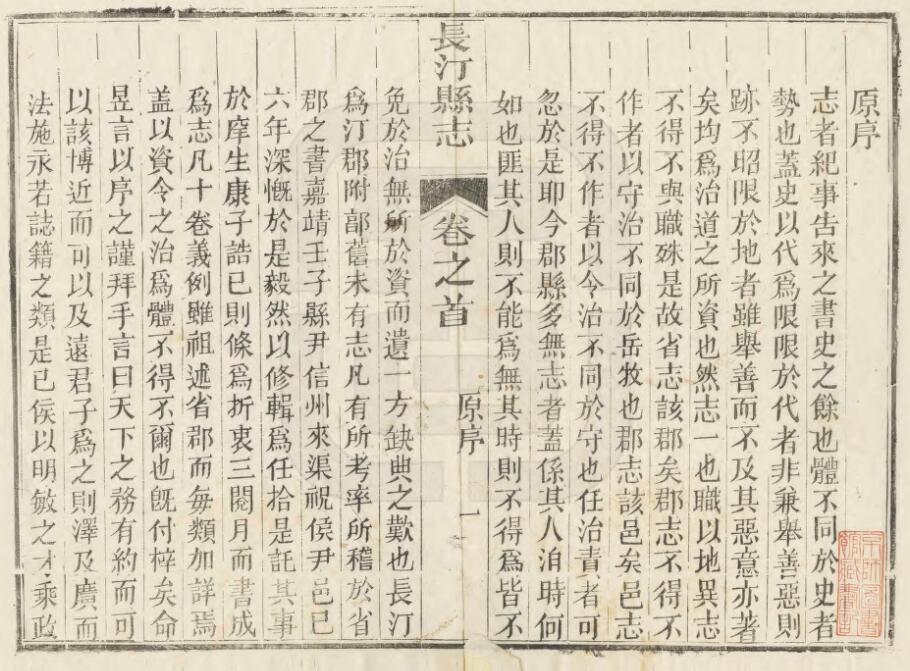 原序
志者紀事吿來之書史之餘也體不同於史者
勢也蓋史以代爲限限於代者非兼舉善惡則
跡不昭限於地者雖舉善而不及其惡意亦著
矣均爲治道之所資也然志一也職以地異志
不得不與職殊是故省志該郡矣郡志不得不
作者以守治不同於岳牧也郡志該邑矣邑志
不得不作者以令治不同於守也任治責者可
忽於是耶今郡縣多無志者蓋係其人洎時何
如也匪其人則不能爲無其時則不得爲皆不
長汀縣志
卷之首
原序
一
免於治無所於資而遺一方缺典之歎也長汀
爲汀郡附郭舊未有志凡有所考率所稽於省
郡之書嘉靖壬子縣尹信州來渠祝侯尹邑已
六年深慨於是毅然以修輯爲任拾是託其事
於庠生康子誥已則條爲折衷三閱月而書成
爲志凡十卷義例雖祖述省郡而每類加詳焉
蓋以資令之治爲體不得不爾也旣付梓矣命
昱言以序之謹拜手言曰天下之務有約而可
以該博近而可以及遠君子爲之則澤及廣而
法施永若誌籍之類是已侯以明敏之才乘政